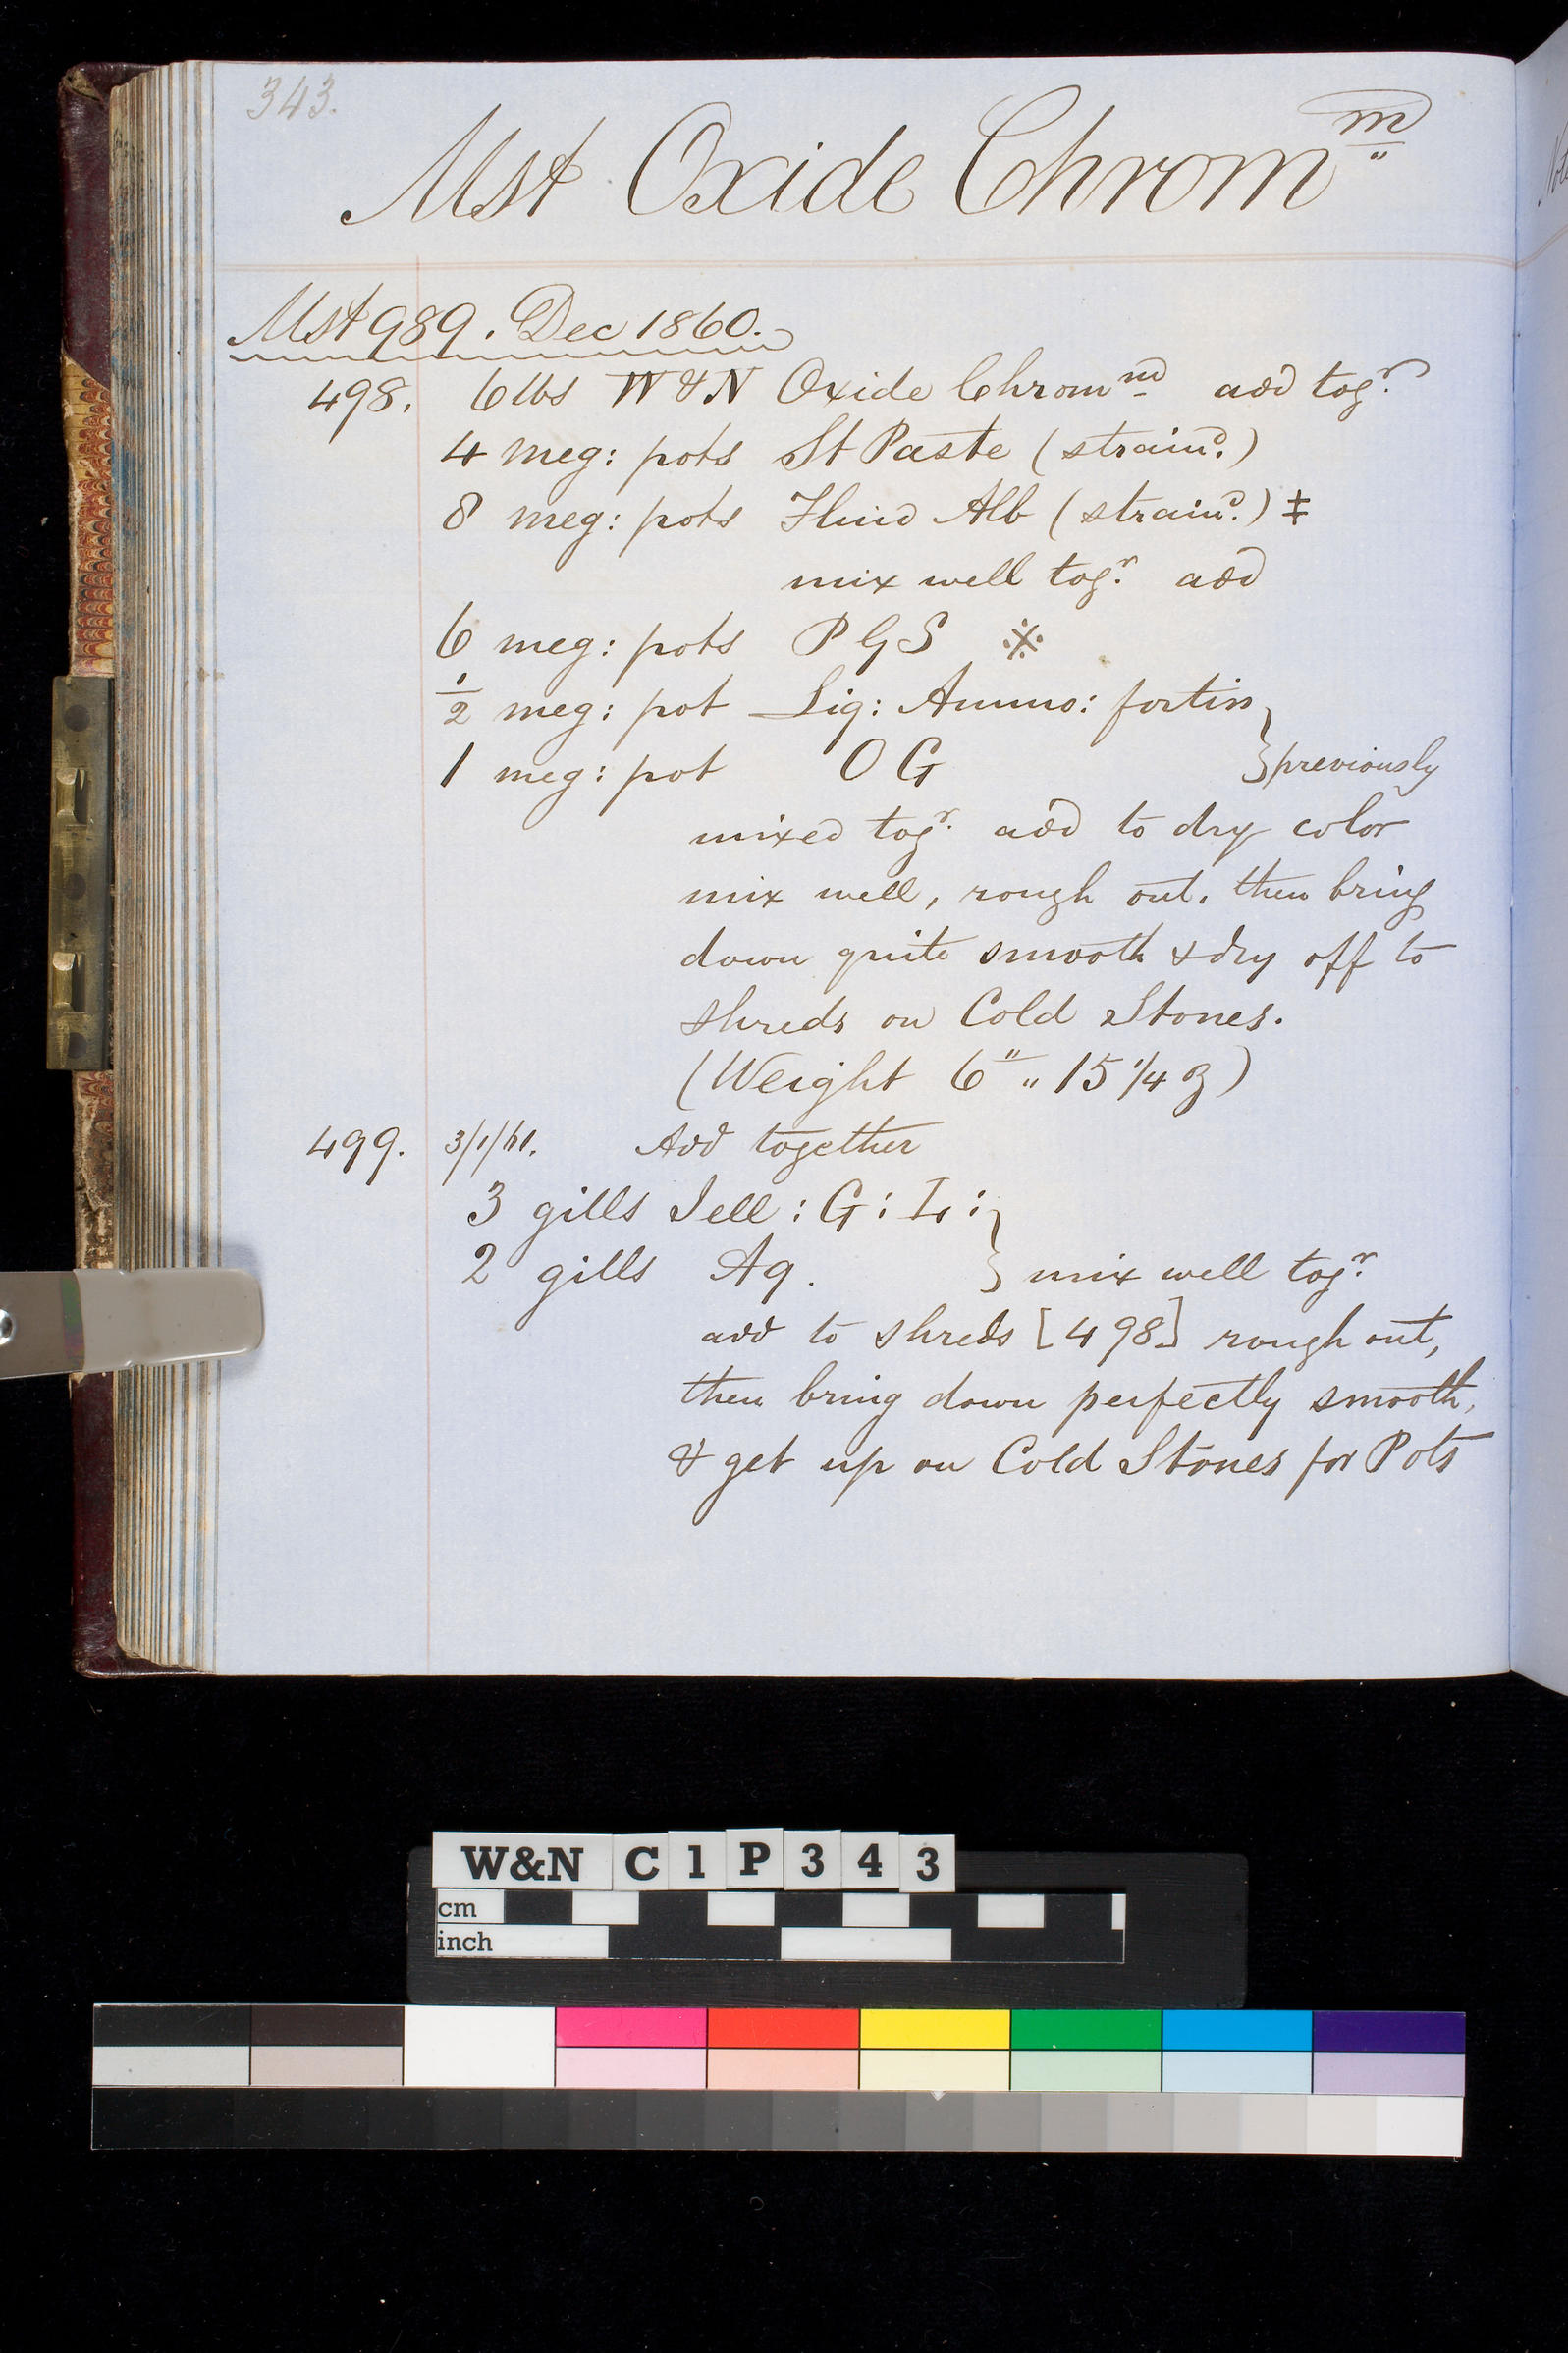 343.
Mst Oxide Chrom^m
Mst 989. Dec 1860.
498. 6 lbs W & N Oxide Chrom^m add tog^r.
4 meg: pots St Paste (strain^d.)
8 meg: pots Fluid Alb (strain^d.) ‡
mix well tog^r. add
6 meg: pots P G S ※
1/2 meg: pot Liq: Ammo: fortis }
1 meg: pot O G } previously
mixed tog^r. add to dry color
mix well, rough out, then bring
down quite smooth & dry off to
shreds on Cold Stones.
(Weight 6 " " 15 1/4 oz)
499. 3/1/61. Add together
3 gills Jell: G: L: }
2 gills Aq. } mix well tog^r.
add to shreds [498] rough out,
then bring down perfectly smooth,
& get up on Cold Stones for Pots
W&N C 1 P 3 4 3
cm
inch